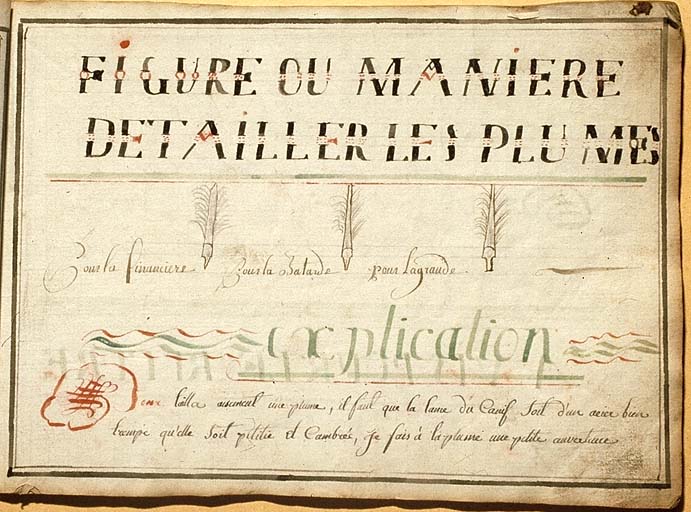 FIGURE OU MANIERE
DETAILLER LES PLUMES
Pour la financiere Pour la Batarde pour La grande
explication
Pour tailler aisement une plume, il faut que la lame du Canif Soit d'un acier bien
trempé qu'elle Soit petitte et Cambrée, Je fais à la plume une petite ouverture